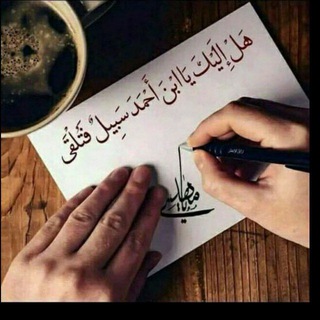 هَلْ إِلَيْكَ يَا ابْنَ أَحْمَدَ سَبِيلٌ فَتُلْقَى